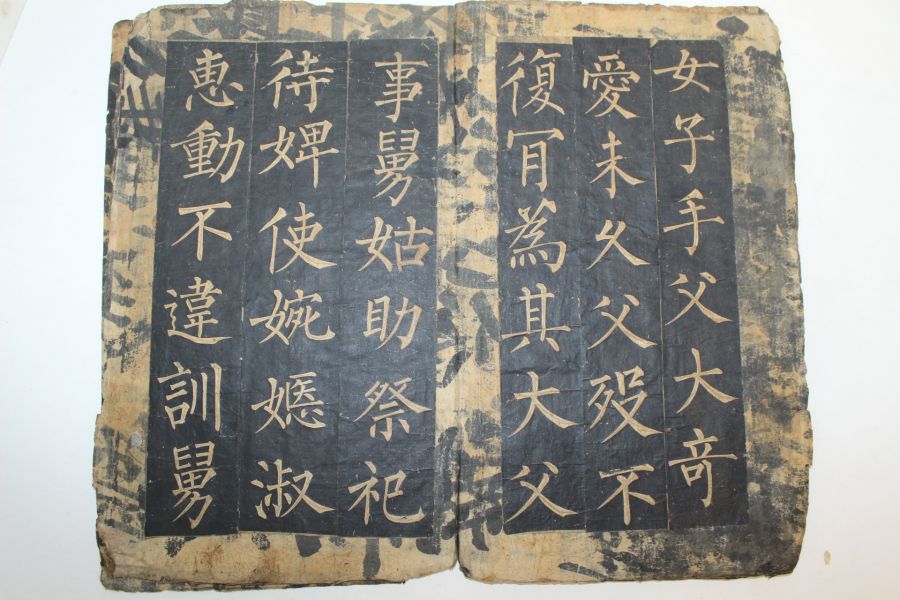 女子手父大竒
愛未久父歿不
復肎為其大父
事舅姑助祭祀
待婢使婉嫕淑
惠動不違訓舅